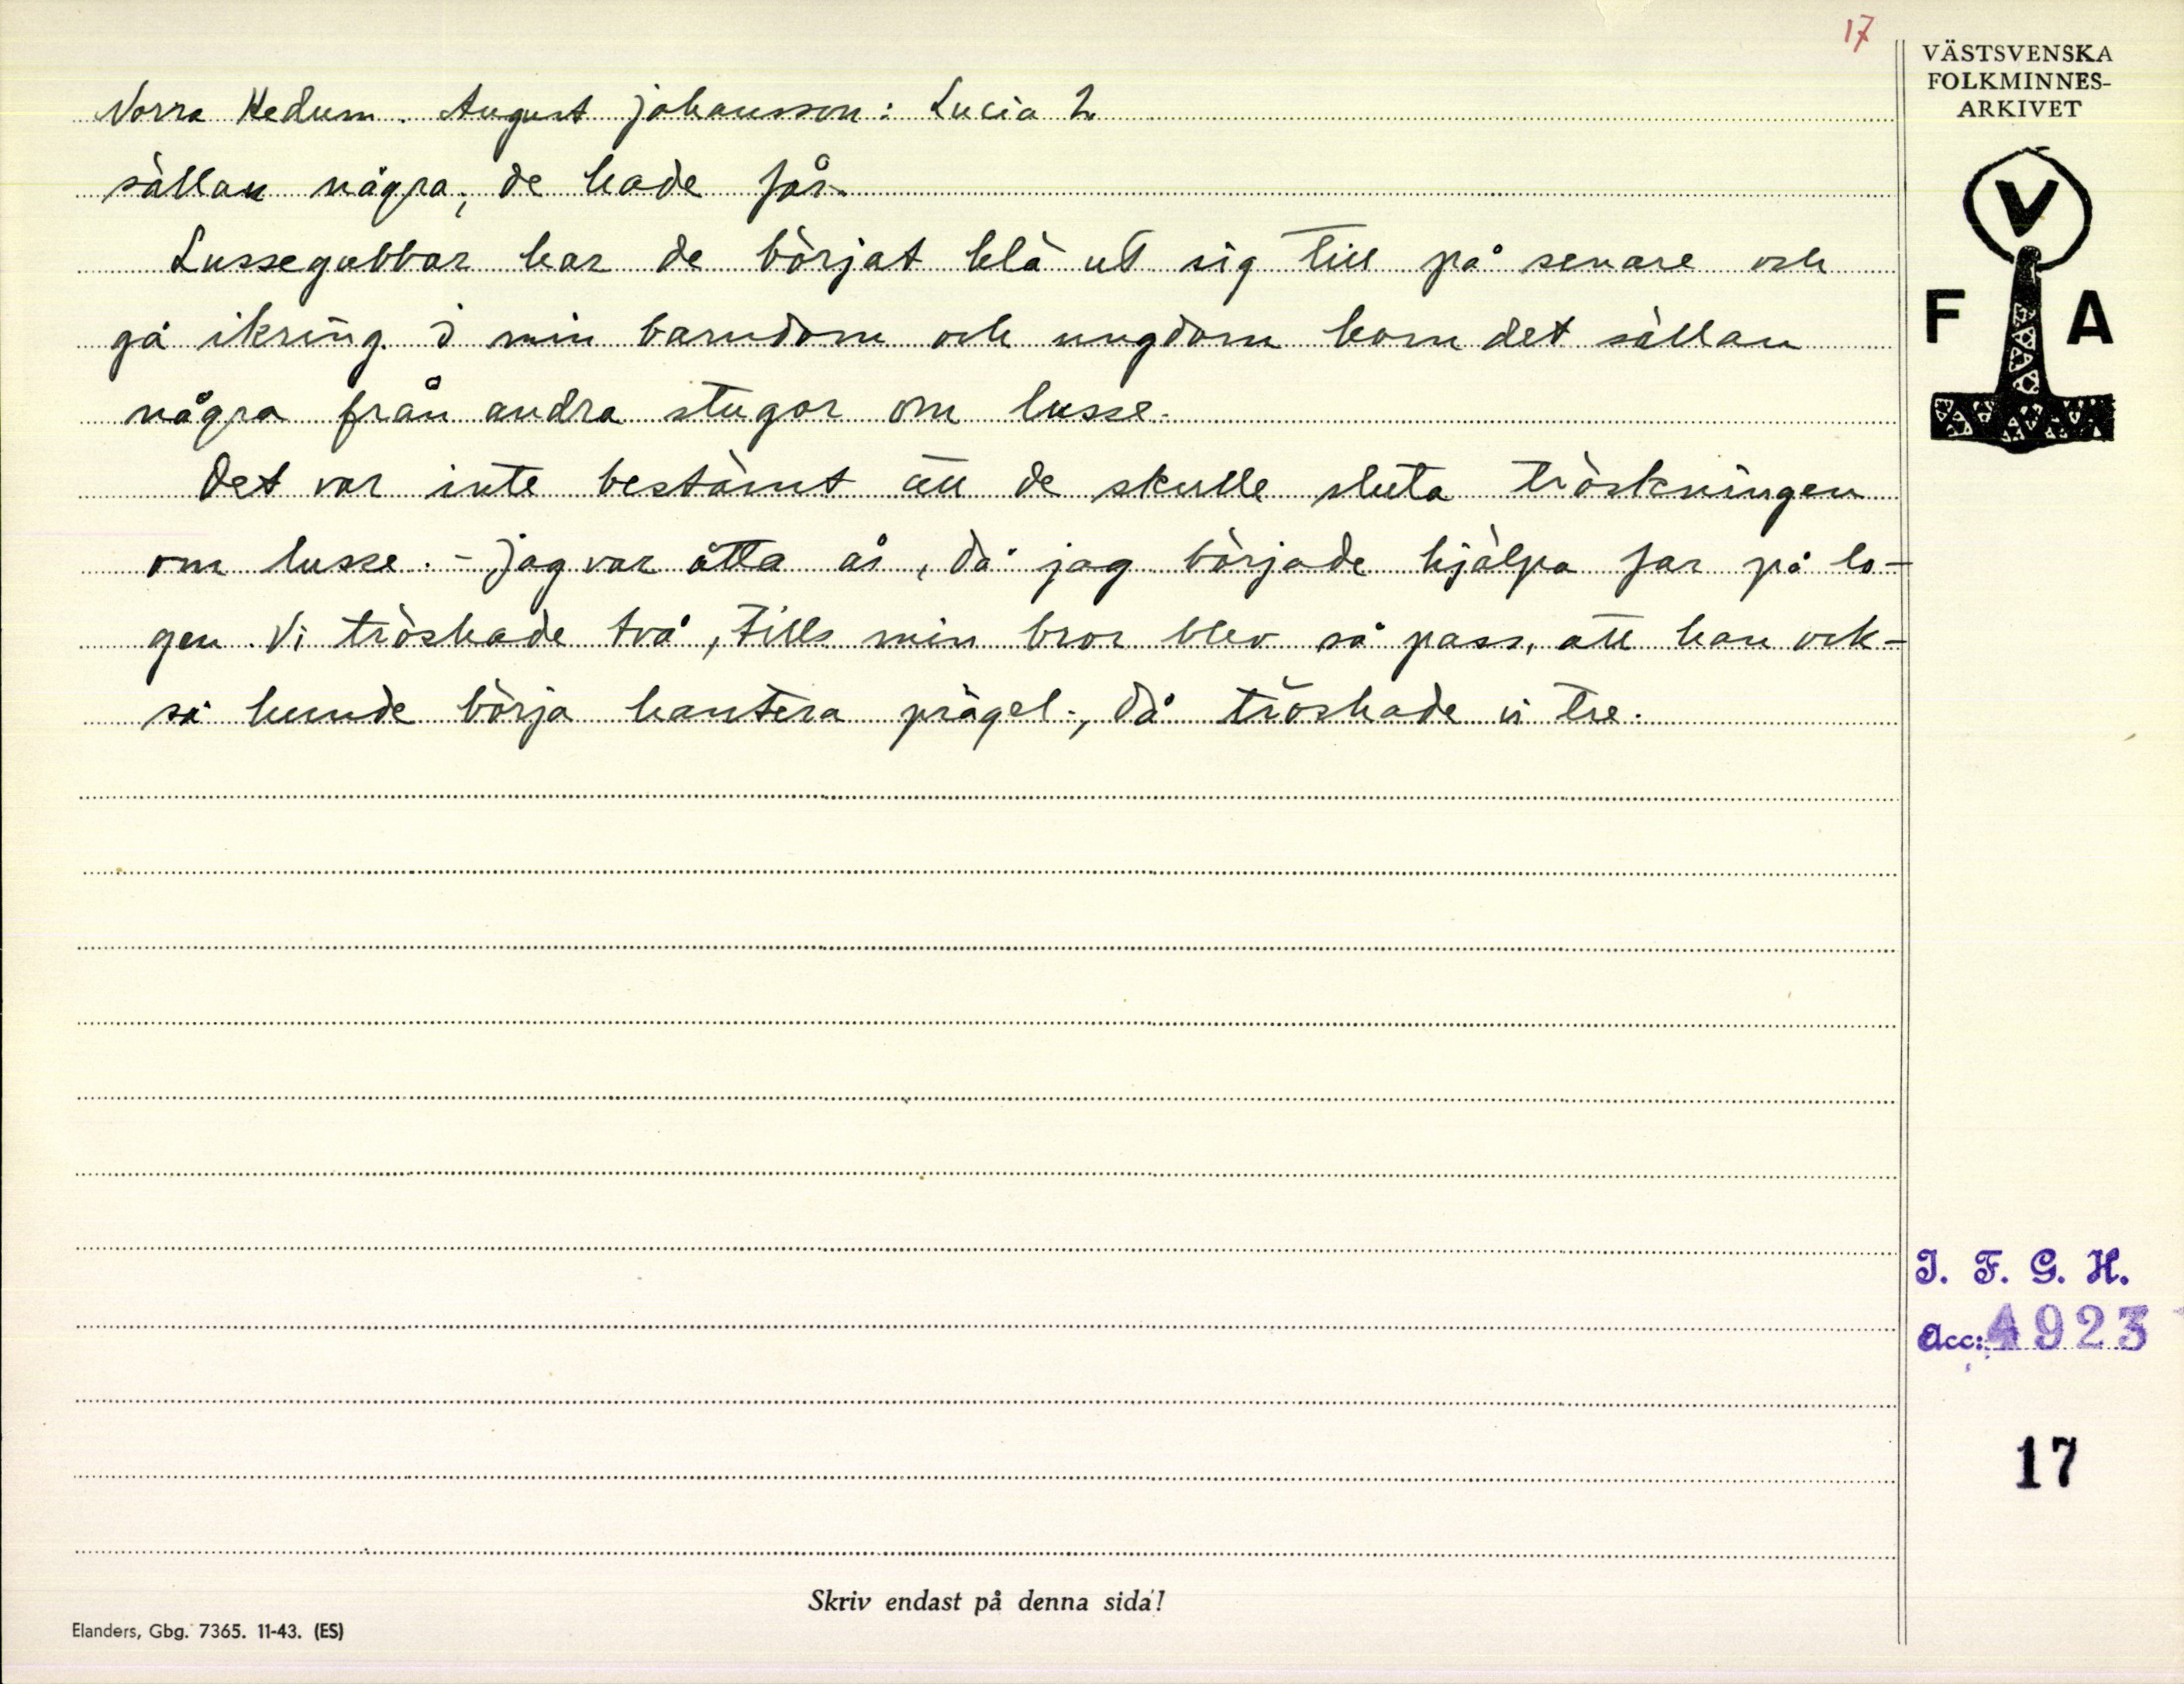 17
VÄSTSVENSKA
FOLKMINNES-
ARKIVET
V
F A
Norra Hedum. August Johansson: Lucia 2
sällan några, de hade får.
Lussegubbar har de börjat klä ut sig till på senare och
gå ikring. I min barndom och ungdom kom det sällan
några från andra stugor om lusse.
Det var inte bestämt att de skulle sluta tröskningen
om lusse. - Jag var åtta år, då jag började hjälpa far på lo-
gen. Vi tröskade två, tills min bror blev så pass, att han ock-
så kunde börja hantera prägel, då tröskade vi tre.
I. F. G. H.
Acc: 4923
17
Skriv endast på denna sida!
Elanders, Gbg. 7365. 11-43. (ES)